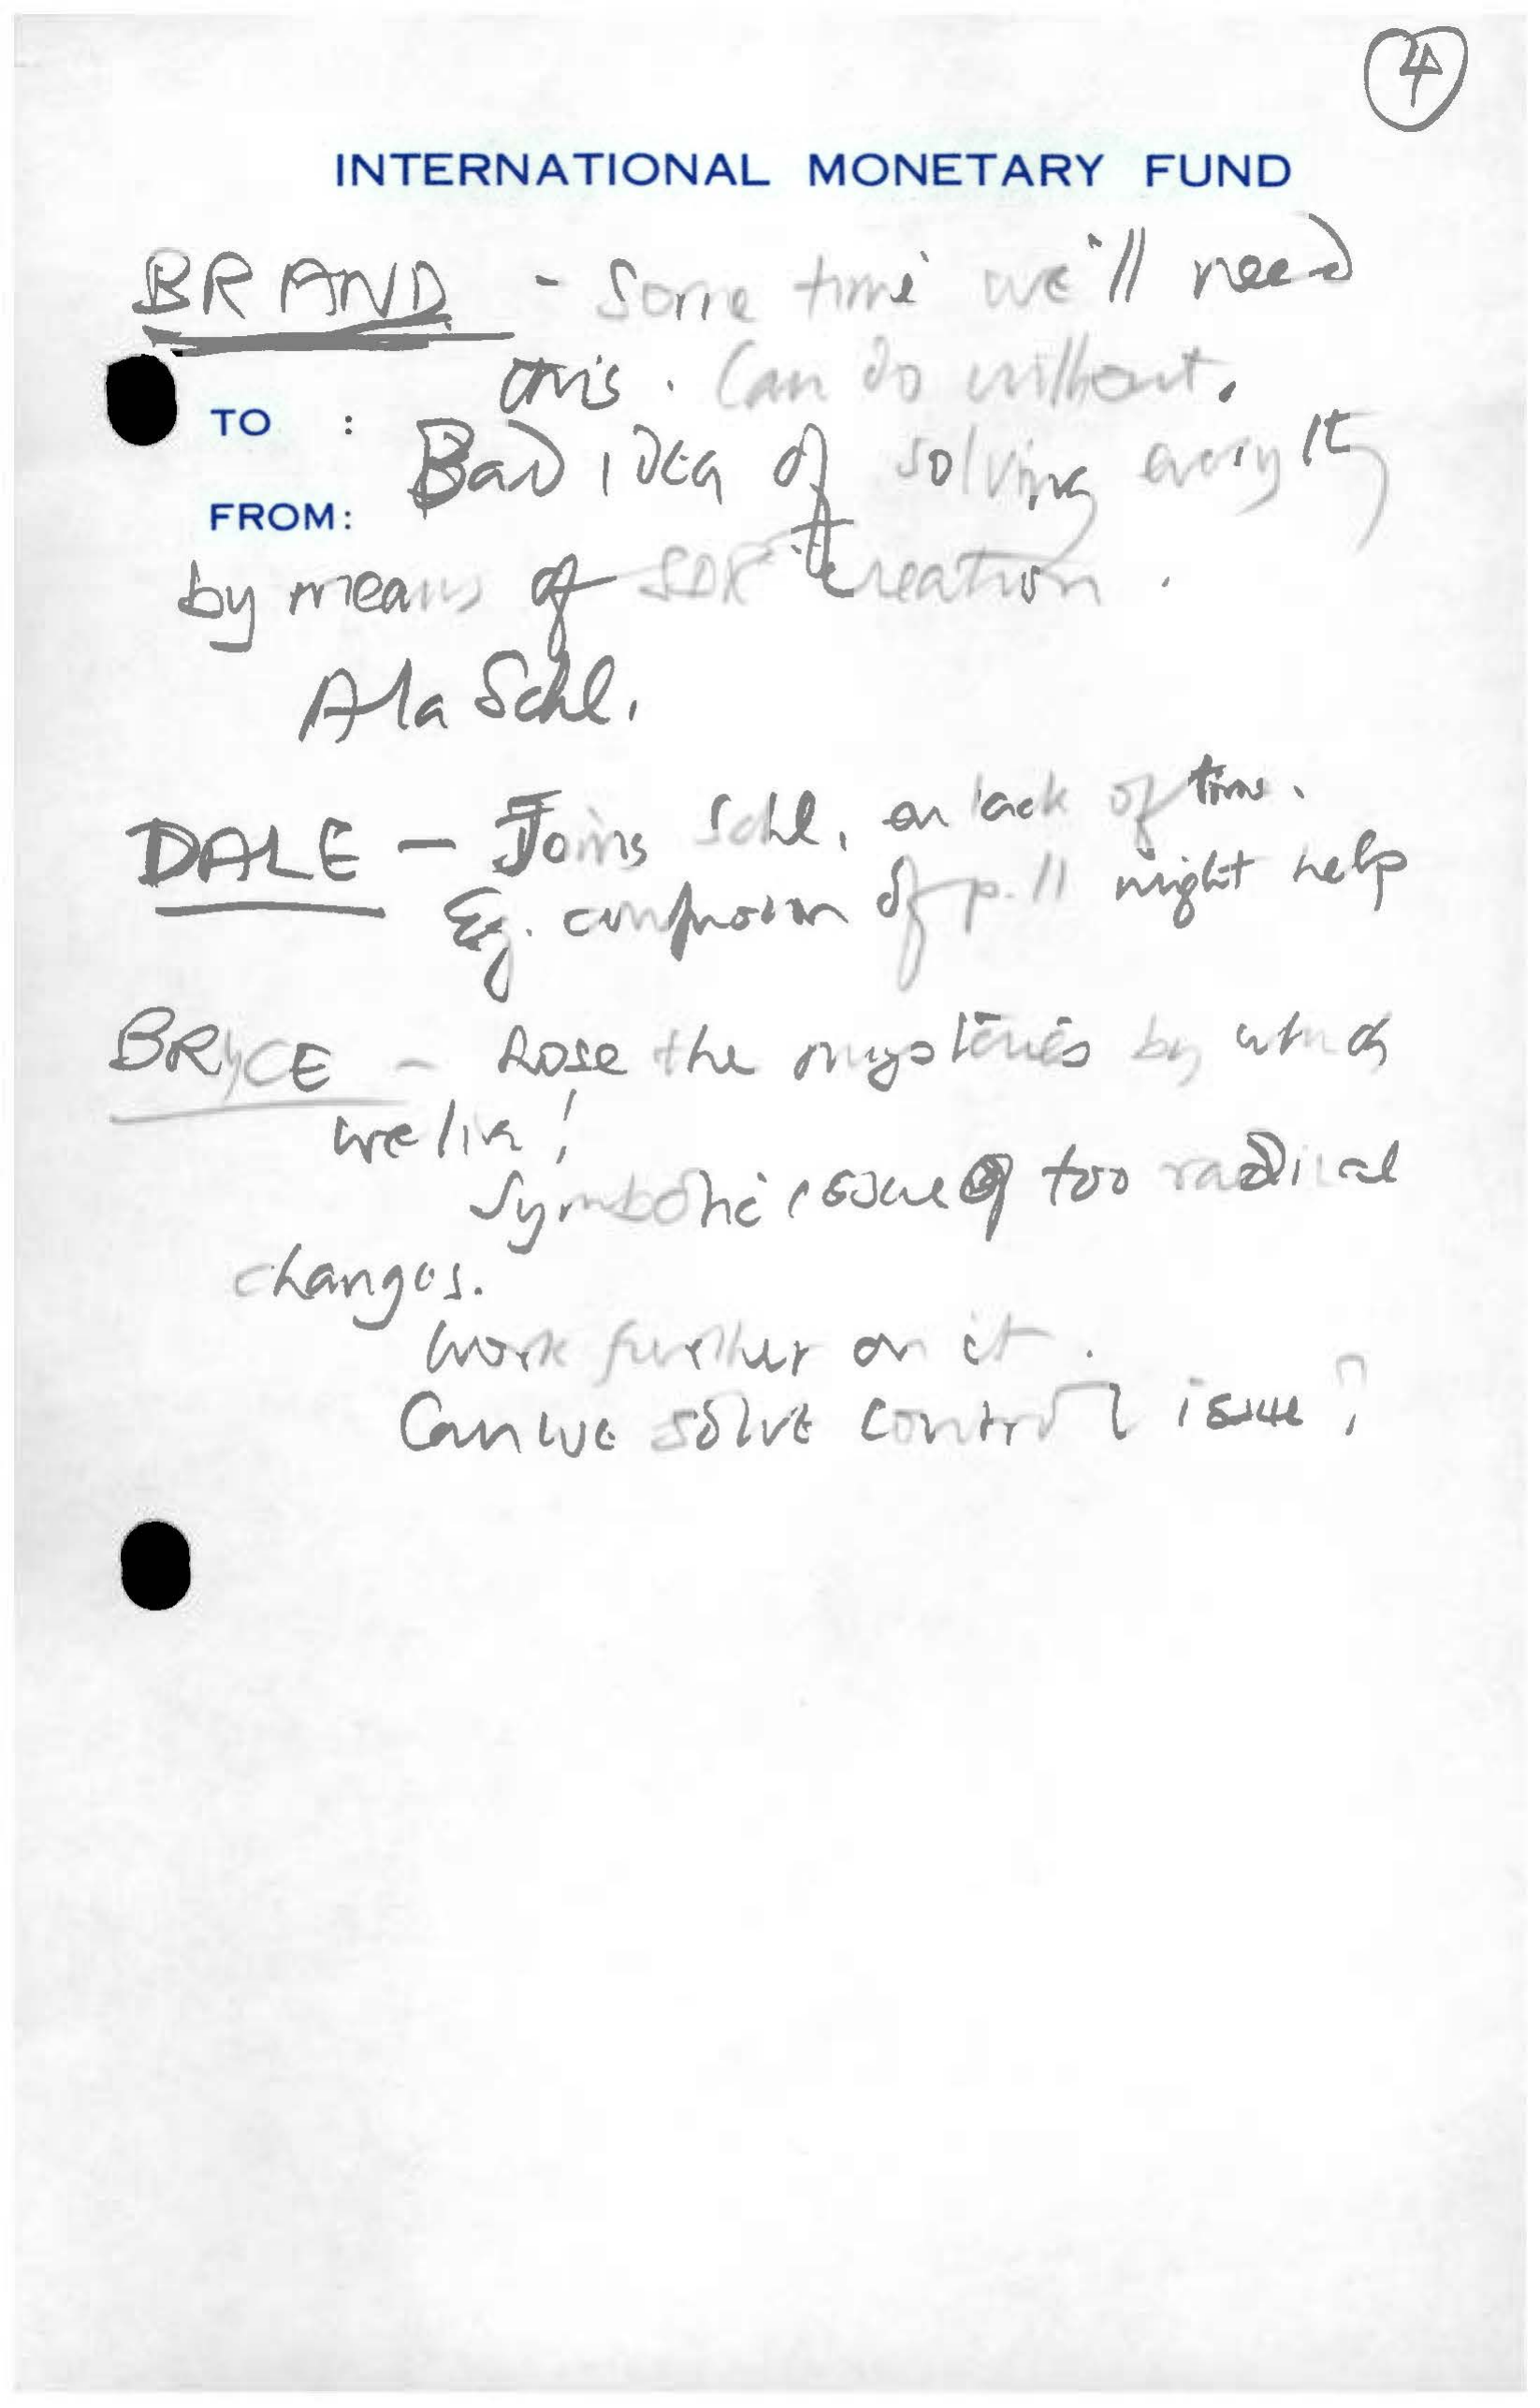 4
INTERNATIONAL MONETARY FUND
BRAND - Some time we'll need
this. Can do without.
TO :
Bad idea of solving everyth
FROM:
by means of SDR creation.
A la Schl.
DALE - Joins Schl. on lack of time.
Eg. of p. 11 might help
BRYCE - Lose the mysteries by which
we live!
Symbolic issue of too radical
changes.
Work further on it.
Can we solve control issue?